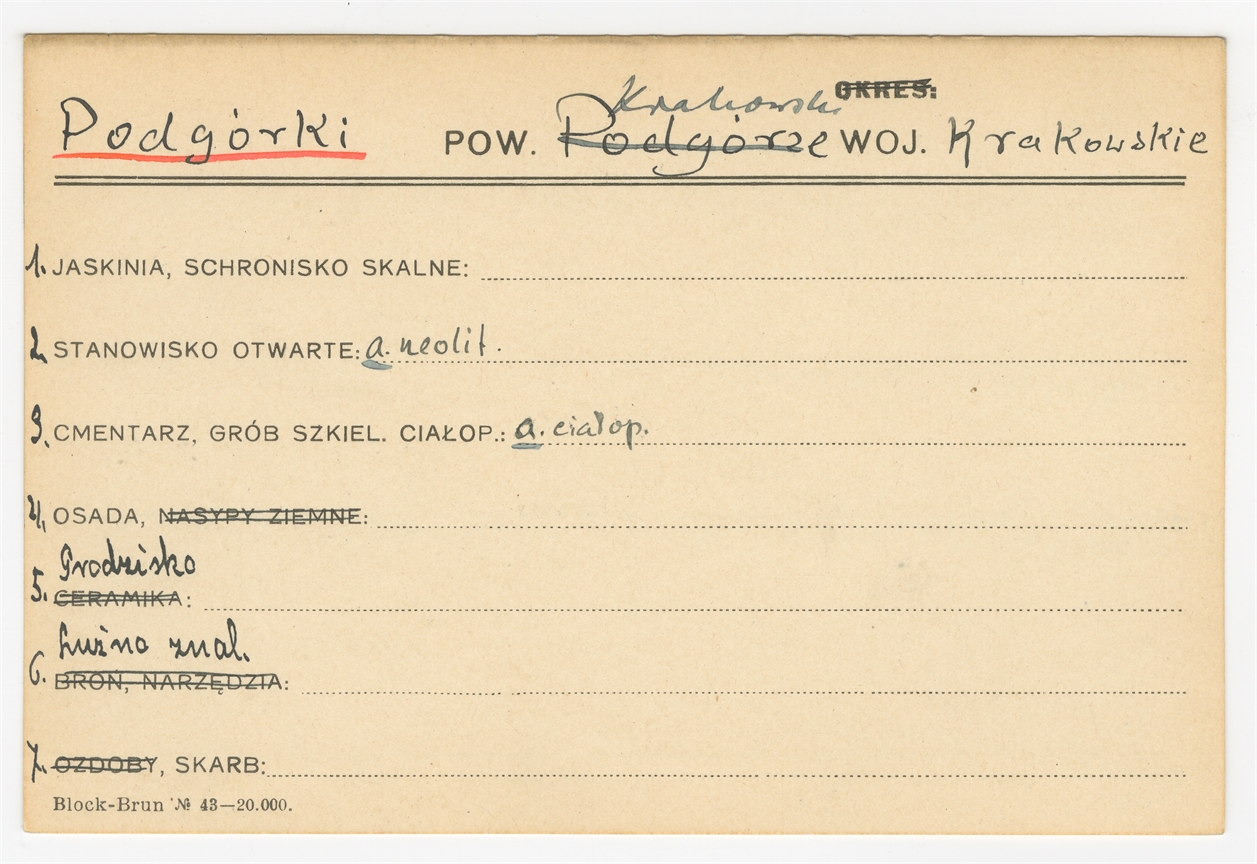 Krakowski OKRES:
Podgórki POW. Podgórze WOJ. Krakowskie
1. JASKINIA, SCHRONISKO SKALNE:
2. STANOWISKO OTWARTE: a. neolit.
3. CMENTARZ, GRÓB SZKIEL. CIAŁOP.: a. ciałop.
4. OSADA, NASYPY ZIEMNE:
Grodzisko
5. CERAMIKA:
Luźno znal.
6. BROŃ, NARZĘDZIA:
7. OZDOBY, SKARB:
Block-Brun № 43—20.000.